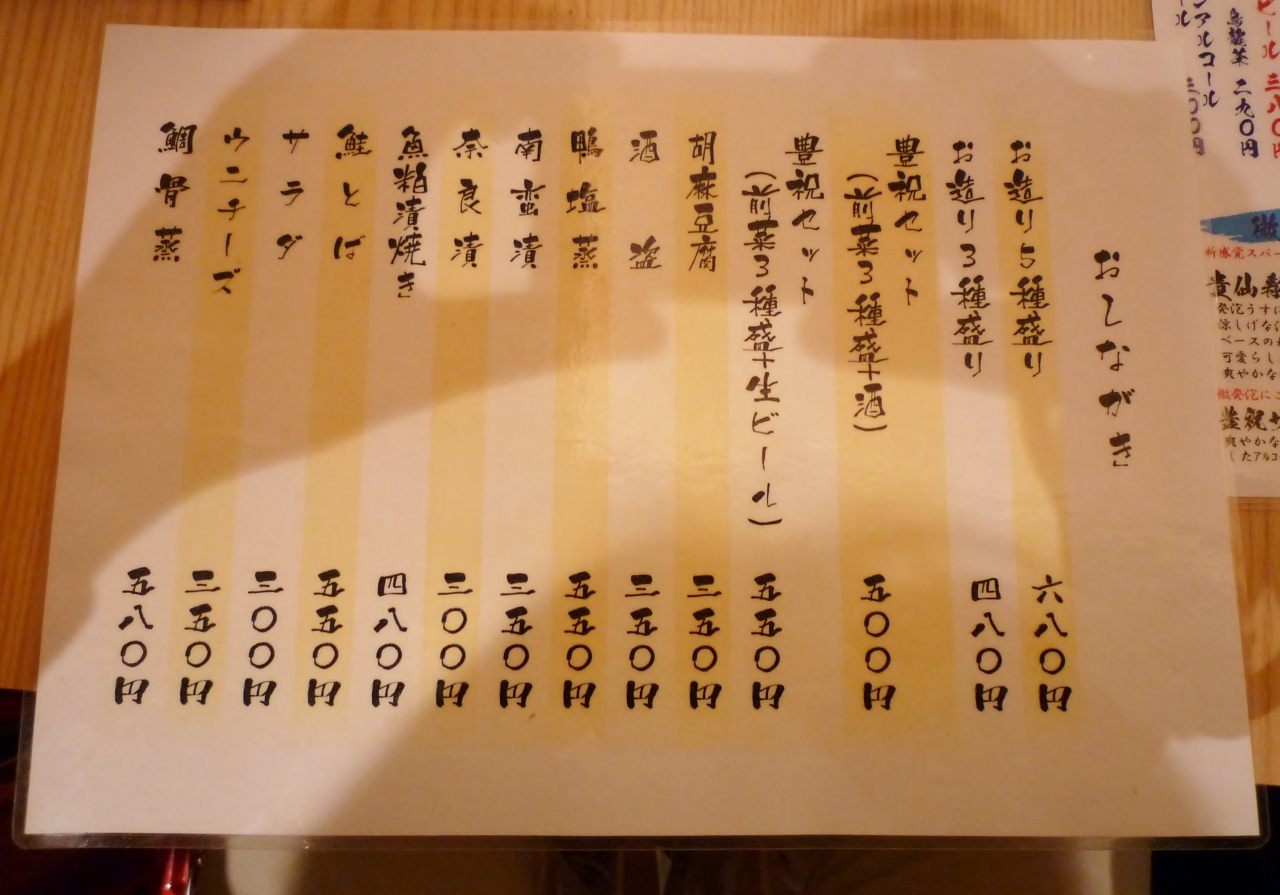 おしながき
お造り5種盛り 六八〇円
お造り3種盛り 四八〇円
豊祝セット
(前菜3種盛+酒) 五〇〇円
豊祝セット
(前菜3種盛+生ビール) 五五〇円
胡麻豆腐 三五〇円
酒盗 三五〇円
鴨塩蒸 五五〇円
南蛮漬 三五〇円
奈良漬 三〇〇円
魚粕漬焼き 四八〇円
鮭とば 五五〇円
サラダ 三〇〇円
ウニチーズ 三五〇円
鯛骨蒸 五八〇円
ビール 三八〇円
烏龍茶 二九〇円
ンアルコール
三〇〇円
微
新感覚スパー
貴仙
発泡うすに
涼しげな
ベースの
可愛らし
爽やかな
微発泡にこ
豊祝サ
爽やかな
したアルコー